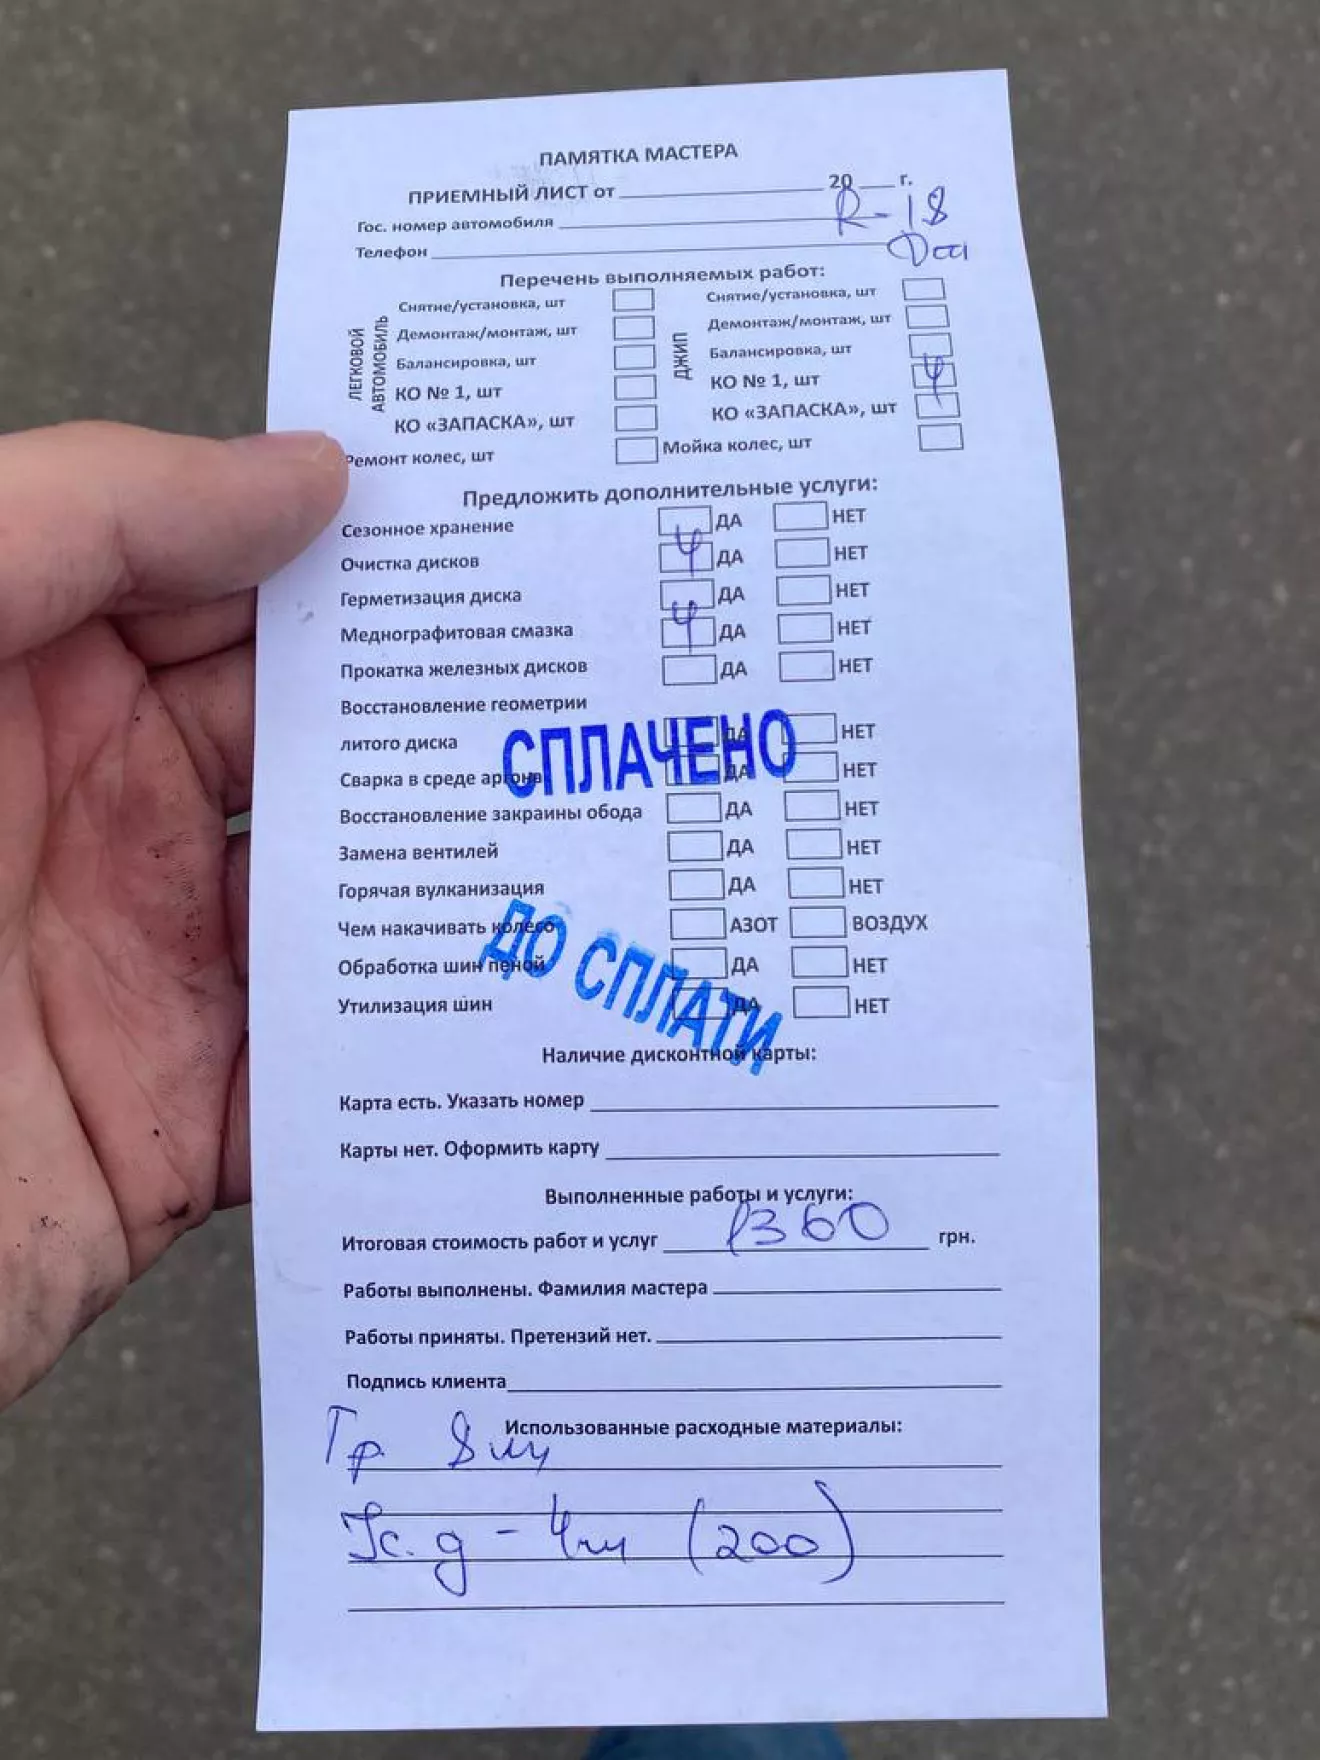 ПАМЯТКА МАСТЕРА
ПРИЕМНЫЙ ЛИСТ от 20 г.
R-18
Гос. номер автомобиля
Телефон
Перечень выполняемых работ:
ЛЕГКОВОЙ АВТОМОБИЛЬ
Снятие/установка, шт
Демонтаж/монтаж, шт
Балансировка, шт
КО № 1, шт
КО «ЗАПАСКА», шт
Ремонт колес, шт
ДЖИП
Снятие/установка, шт
Демонтаж/монтаж, шт
Балансировка, шт
КО № 1, шт 4
КО «ЗАПАСКА», шт
Мойка колес, шт
Предложить дополнительные услуги:
Сезонное хранение ДА НЕТ
Очистка дисков 4 ДА НЕТ
Герметизация диска ДА НЕТ
Меднографитовая смазка 4 ДА НЕТ
Прокатка железных дисков ДА НЕТ
Восстановление геометрии
литого диска ДА НЕТ
СПЛАЧЕНО
Сварка в среде аргона ДА НЕТ
Восстановление закраины обода ДА НЕТ
Замена вентилей ДА НЕТ
Горячая вулканизация ДА НЕТ
Чем накачивать колесо АЗОТ ВОЗДУХ
ДО СПЛАТИ
Обработка шин пеной ДА НЕТ
Утилизация шин ДА НЕТ
Наличие дисконтной карты:
Карта есть. Указать номер
Карты нет. Оформить карту
Выполненные работы и услуги:
Итоговая стоимость работ и услуг 1360 грн.
Работы выполнены. Фамилия мастера
Работы приняты. Претензий нет.
Подпись клиента
Использованные расходные материалы:
Гр 8шт
(200)